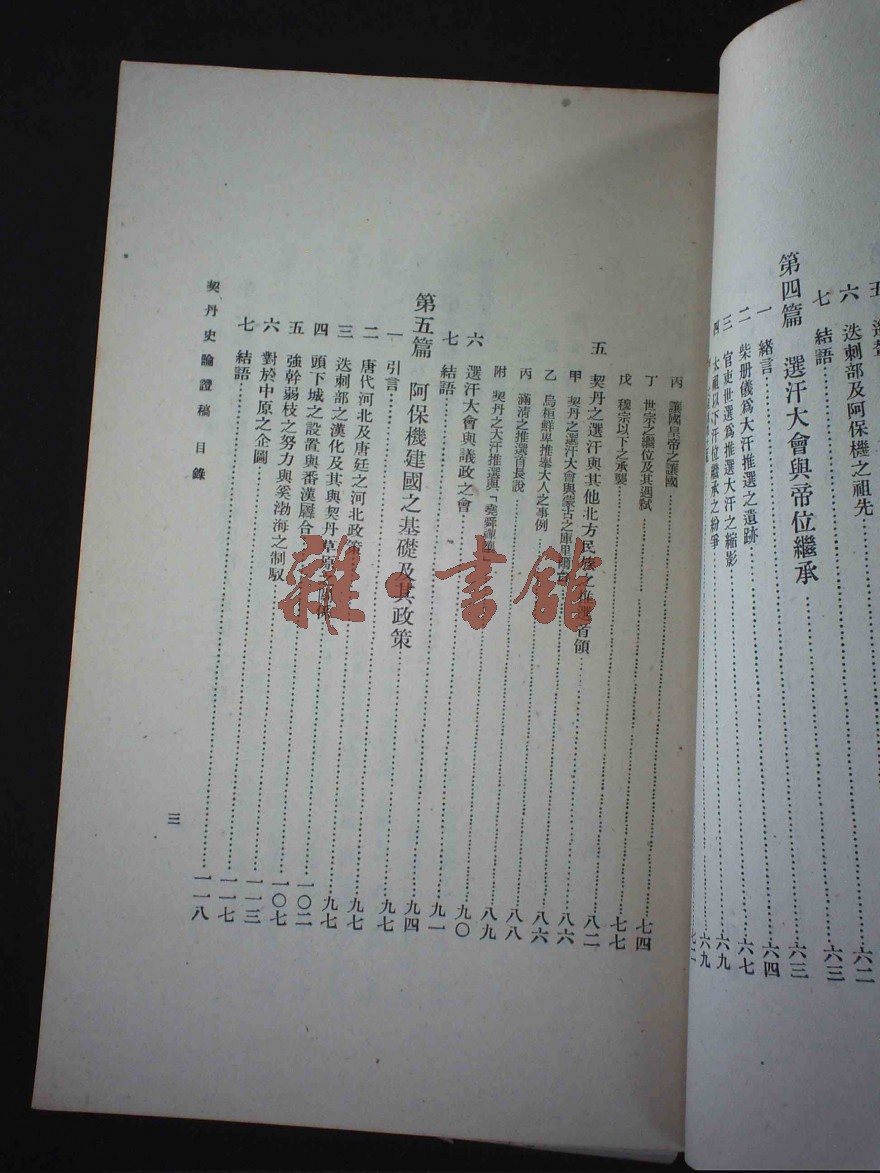 六 迭剌部及阿保機之祖先……六二
七 結語……六三
第四篇 選汗大會與帝位繼承……六三
一 緒言……六四
二 柴册儀爲大汗推選之遺跡……六七
三 官吏世選爲推選大汗之縮影……六九
四 太祖以下汗位繼承之紛爭……六九
七二
丙 讓國皇帝之讓國……七四
丁 世宗之簒位及其遇弒……七七
戊 穆宗以下之承襲……八二
五 契丹之選汗與其他北方民族之推選首領……八六
甲 契丹之選汗大會與蒙古之庫里爾台……八六
乙 烏桓鮮卑推舉大人之事例……八八
丙 滿清之推選酋長說……八九
附 契丹之大汗推選與「堯舜禪讓」……九〇
六 選汗大會與議政之會……九一
七 結語……九四
第五篇 阿保機建國之基礎及其政策……九七
一 引言……九七
二 唐代河北及唐廷之河北政策……九七
三 迭剌部之漢化及其與契丹草原之關係……一〇二
四 頭下城之設置與番漢雜合……一〇七
五 強幹弱枝之努力與奚渤海之制馭……一一三
六 對於中原之企圖……一一七
七 結語……一一八
契丹史論證稿 目錄
三
雜·書館